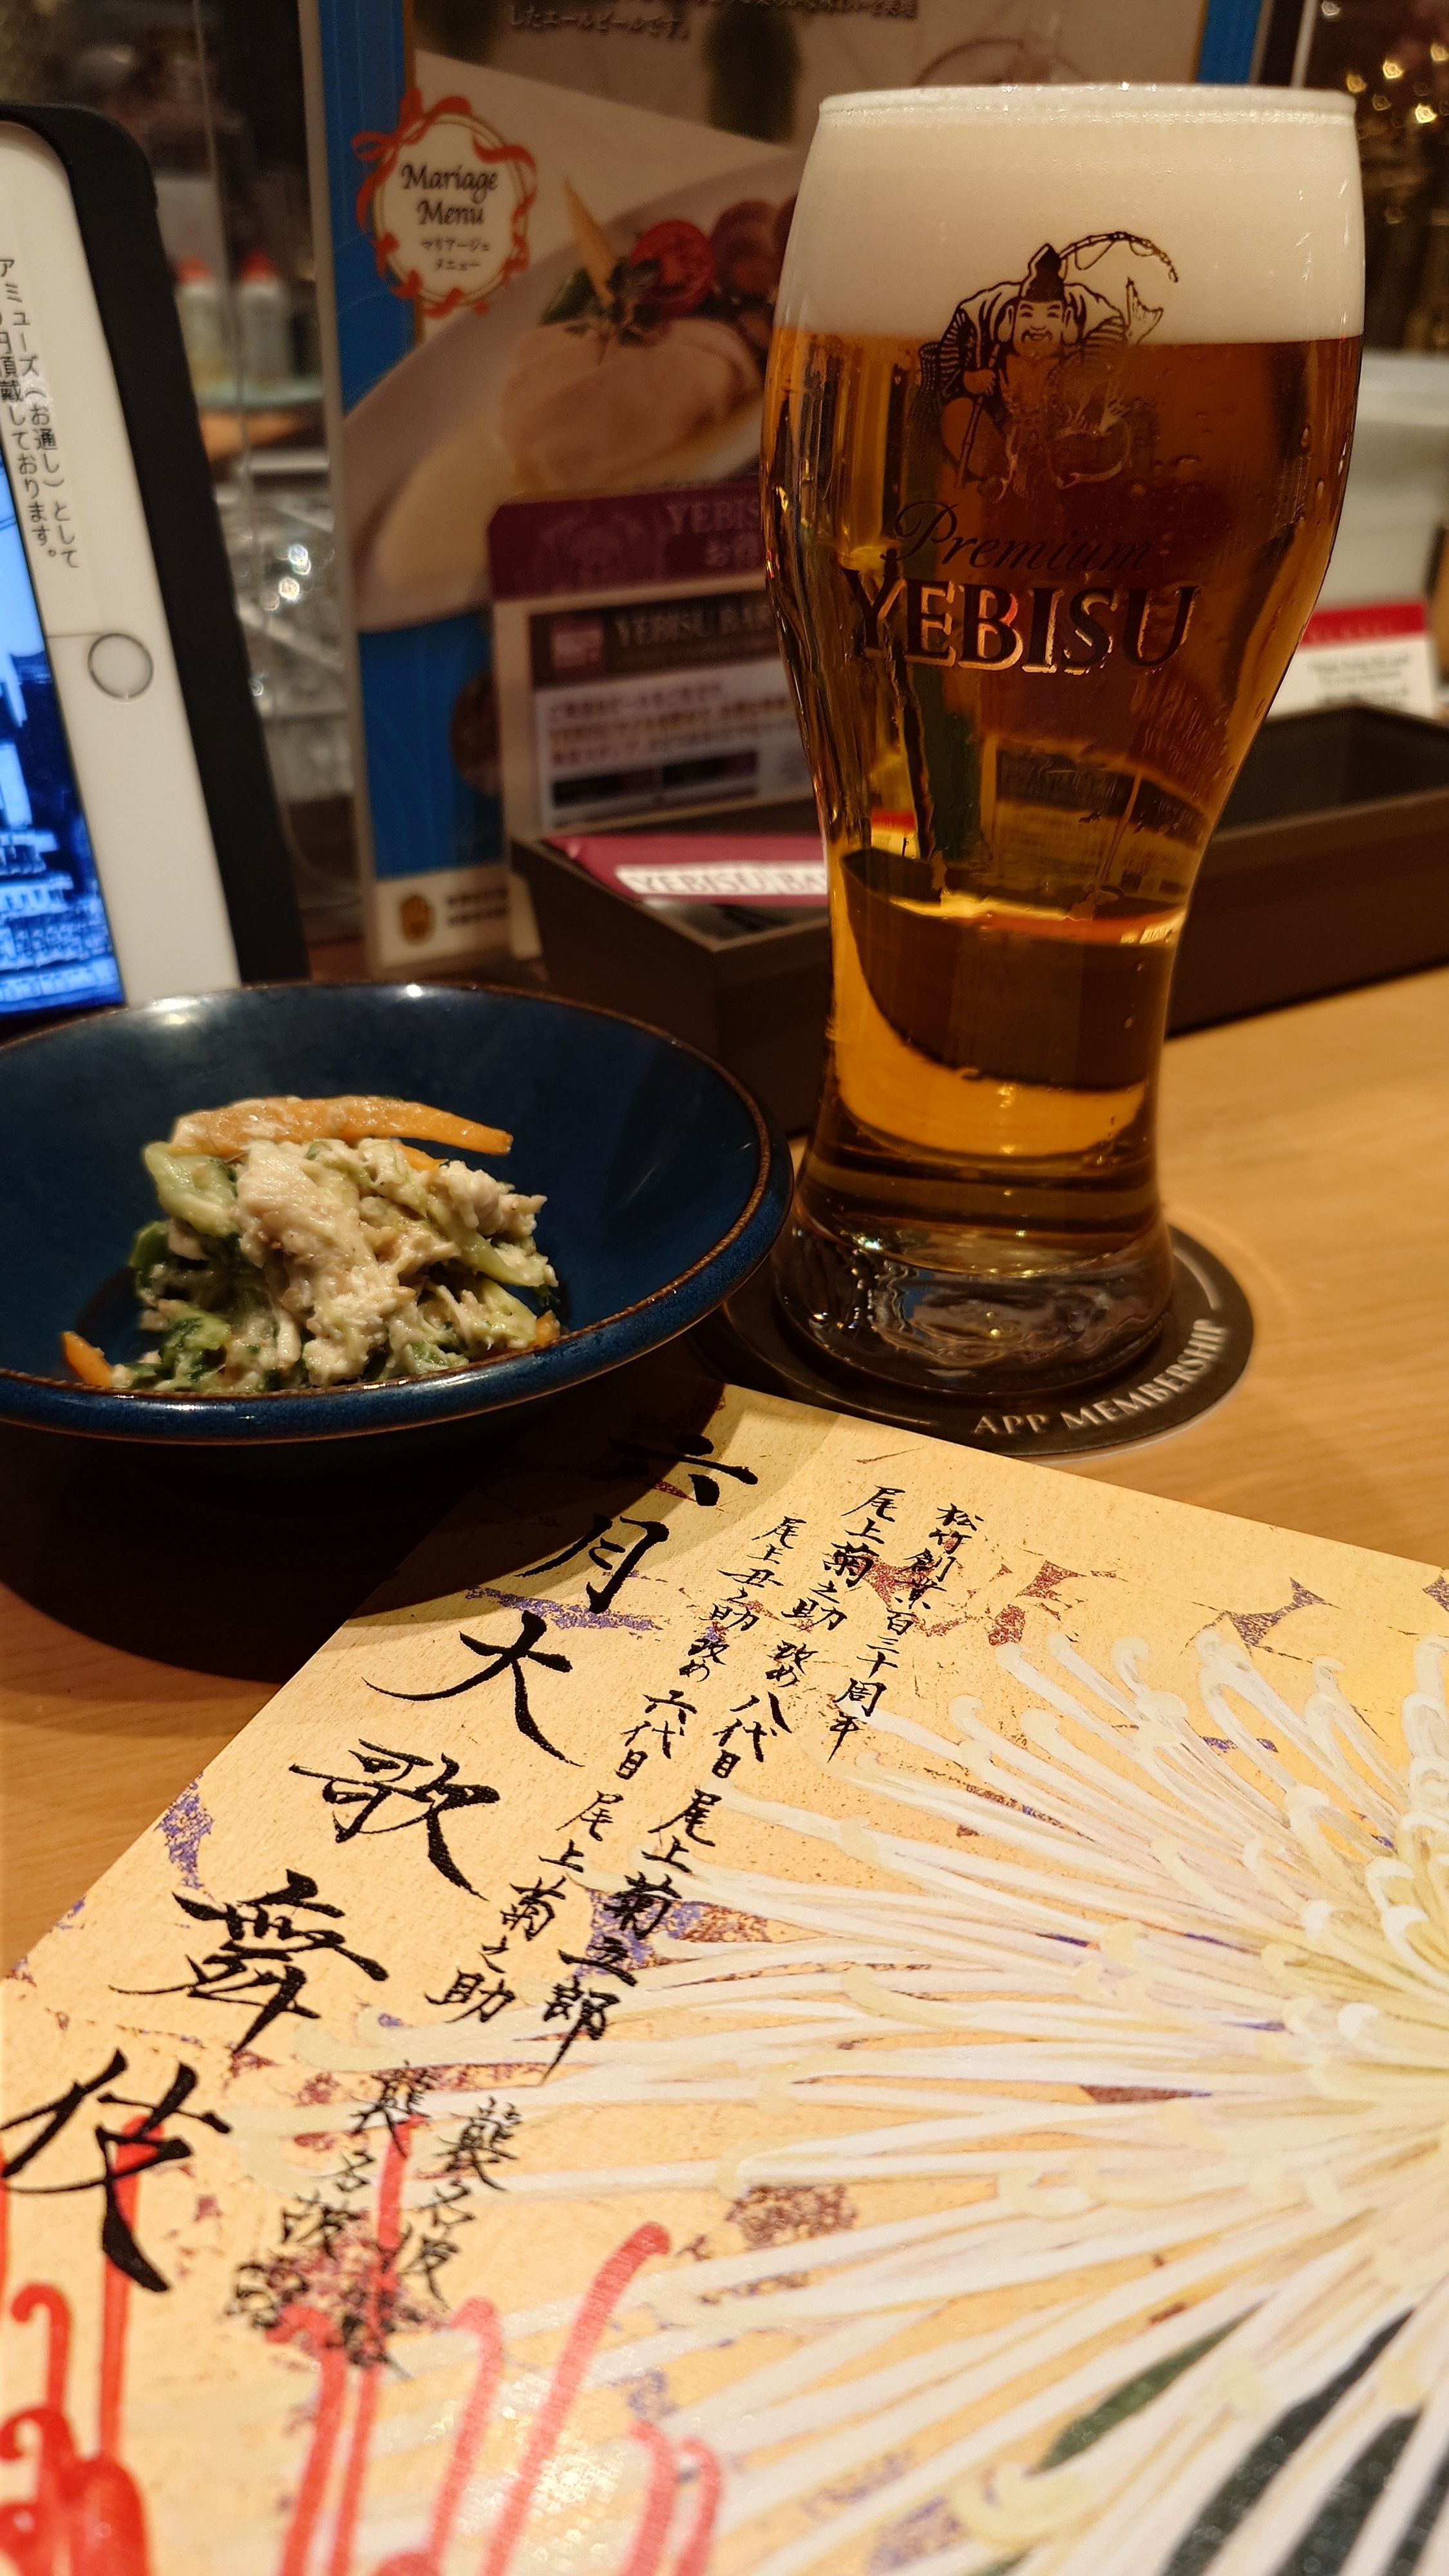 したエールビールです。
Mariage
Menu
マリアージュ
メニュー
アミューズ（お通し）として
円頂戴しております。
Premium
YEBISU
YEBISU BAR
YEBISU BA
APP MEMBERSHIP
松竹創業百三十周年
尾上菊之助 改め 八代目 尾上菊五郎 襲名披露
尾上丑之助 改め 六代目 尾上菊之助 襲名披露
六月大歌舞伎